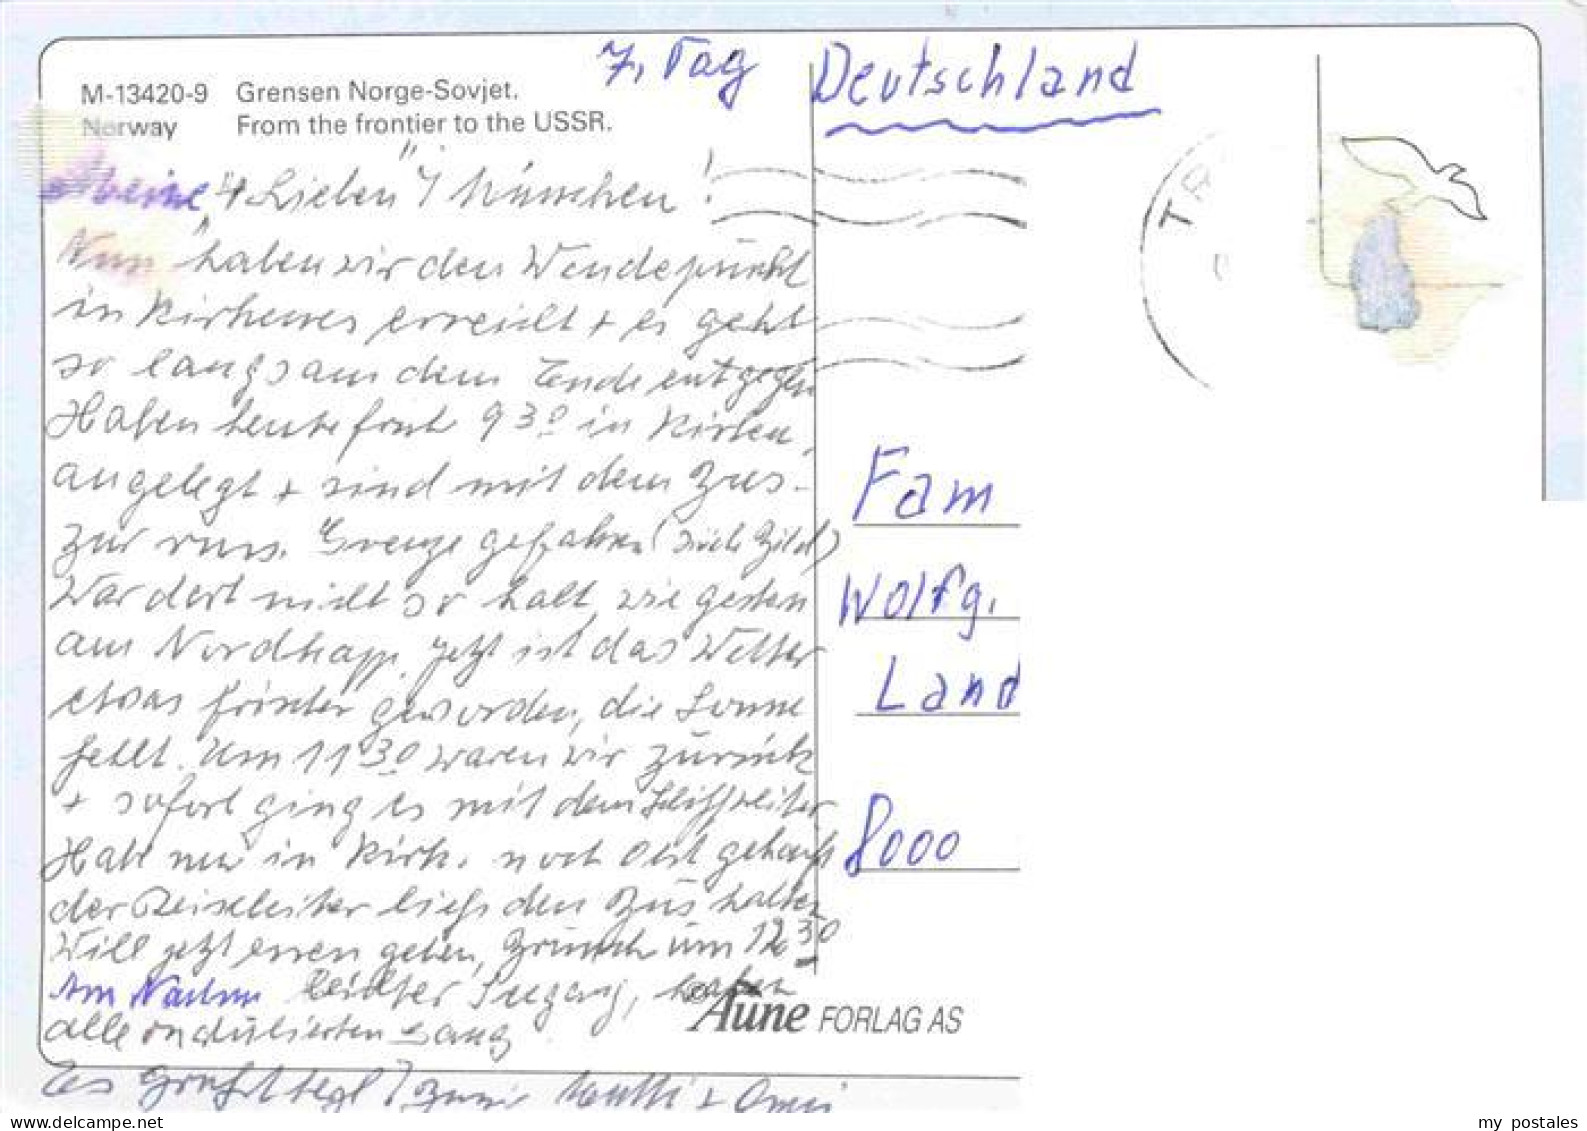 M-13420-9 Grensen Norge-Sovjet.
Norway From the frontier to the USSR.
7. Tag
Deutschland
Meine "4 Lieben" 4 Münschen!
Nun haben wir den Wendepunkt
in Kirkenes erreicht + es geht
so langsam dem Ende entgegen
Haben heute früh 9 30 in Kirken.
angelegt + sind mit dem Bus
zur russ. Grenze gefahren (siehe Bild)
War dort nicht so kalt wie gestern
am Nordkapp. Jetzt ist das Wetter
etwas frischer geworden, die Sonne
fehlt. Um 11 30 waren wir zurück
+ sofort ging es mit dem Schiff weiter
Hab mir in Kirk. noch Obst gekauft
der Reiseleiter ließ den Bus halten
Will jetzt essen gehen, Brunch um 12 30
Am Nachm leichter Seegang, haben
alle ondulierten Gang
Es grüßt + Omi
Fam
Wolfg.
Land
8000
Aune FORLAG AS
my postales